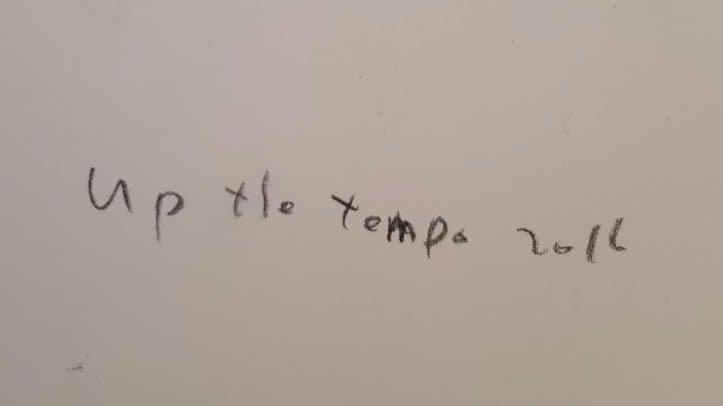 Up the tempo 2016